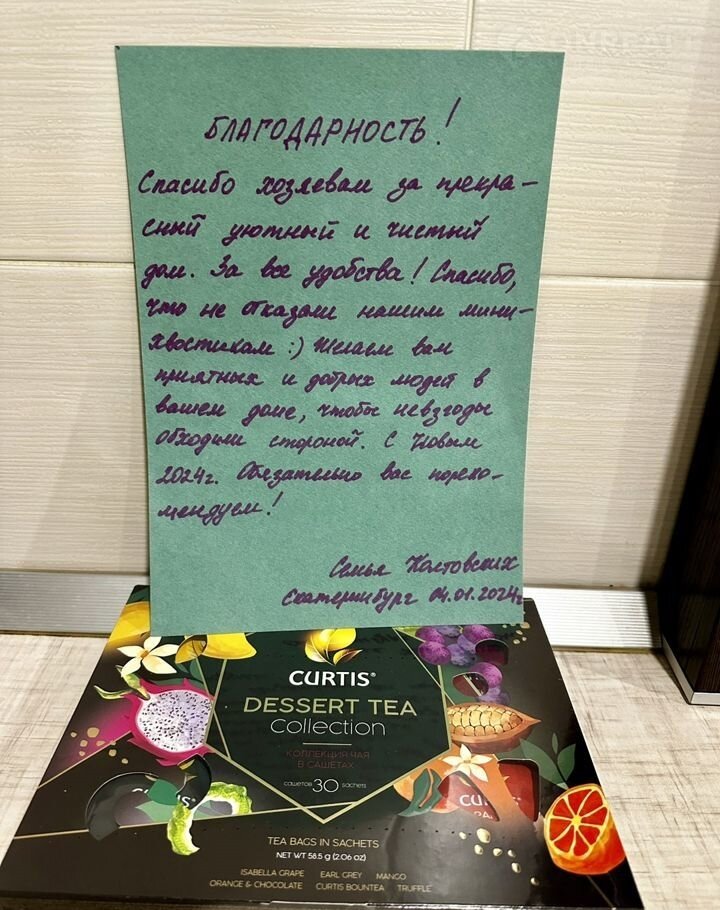 БЛАГОДАРНОСТЬ!
Спасибо хозяевам за прекра-
сный уютный и чистый
дом. За все удобства! Спасибо,
что не отказали нашим мини-
хвостикам :) Желаем вам
приятных и добрых людей в
вашем доме, чтобы невзгоды
обходили стороной. С Новым
2024г. Обязательно вас пореко-
мендуем!
Семья
Екатеринбург 04.01.2024г
CURTIS®
DESSERT TEA
Collection
КОЛЛЕКЦИЯ ЧАЯ
В САШЕТАХ
сашетов 30 sachets
CURTIS
TEA BAGS IN SACHETS
NET WT 58.5 g (2.06 oz)
ISABELLA GRAPE EARL GREY MANGO
ORANGE & CHOCOLATE CURTIS BOUNTEA TRUFFLE